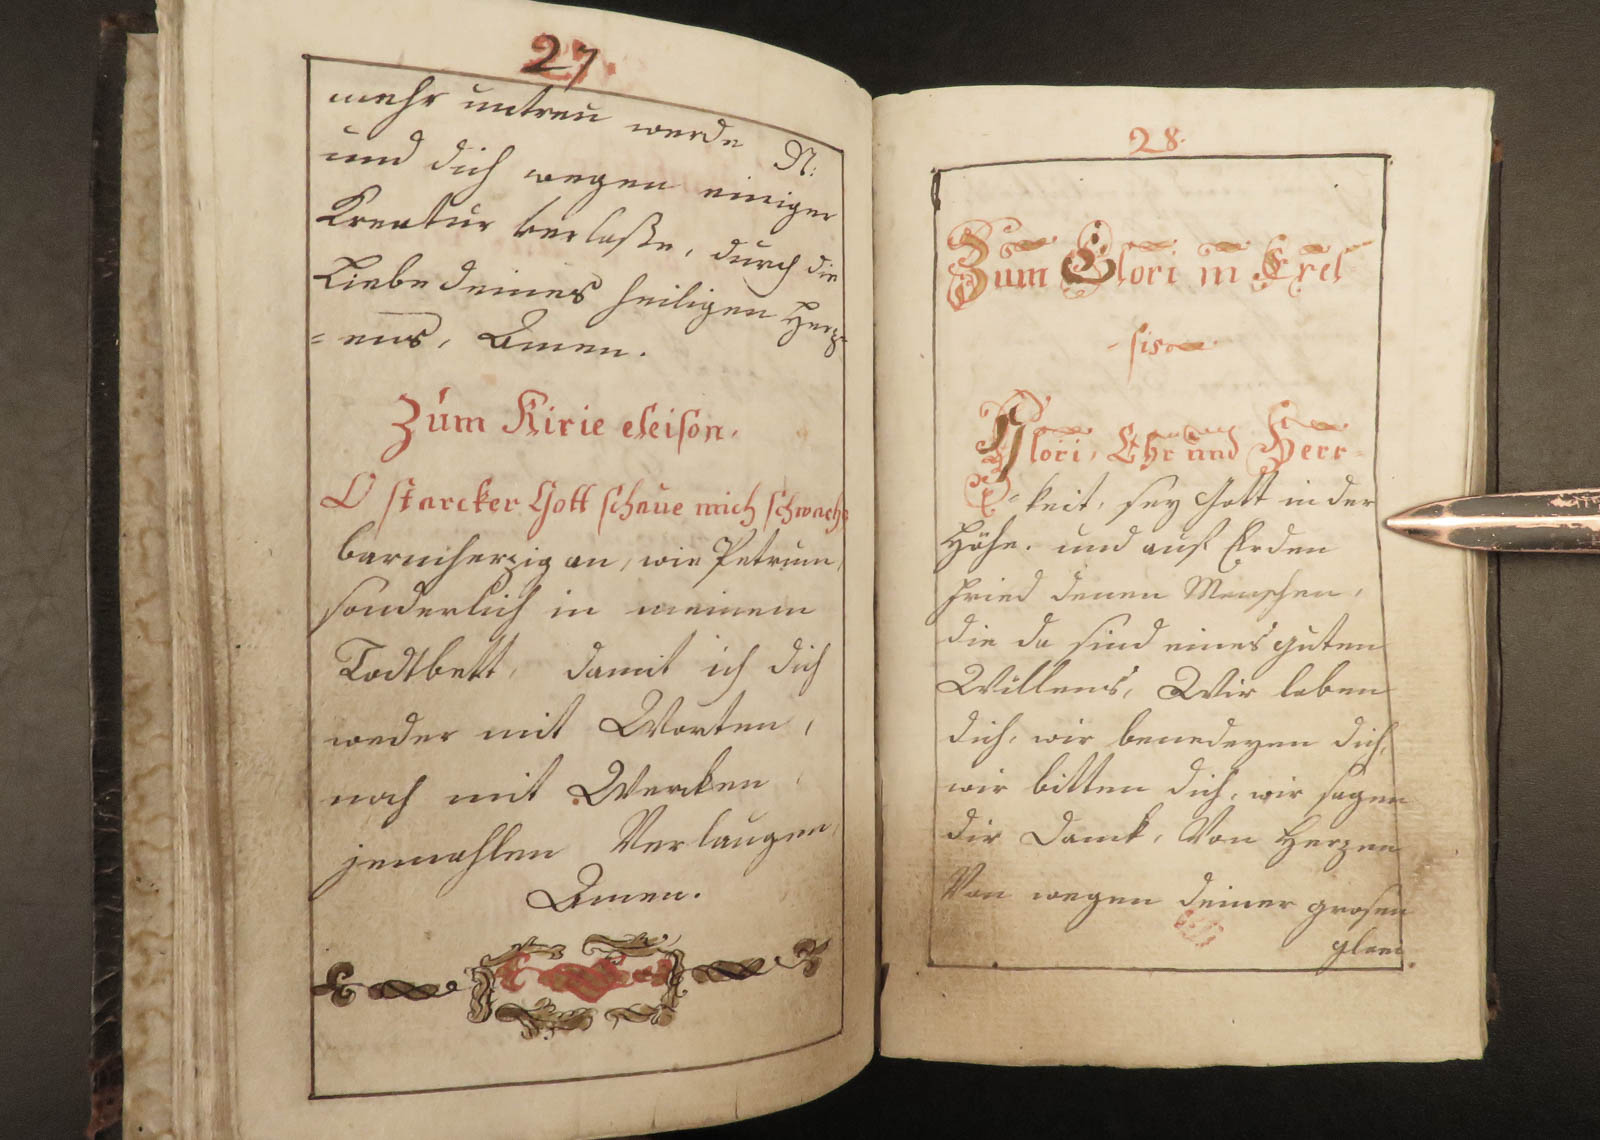 27.
mehr untreu werde N:
und dich wegen einiger
Kreatur verlaße, durch die
Liebe deines heiligen Herz=
=ens, Amen.
Zum Kirie eleison,
O starcker Gott schaue mich schwach
barmherzig an, wie Petrum,
sonderlich in meinem
Todtbett, damit ich dich
weder mit Worten,
noch mit Wercken,
jemahlen Verlaugen,
Amen.
28.
Zum Glori in Excel
-sis
Glori, Ehr und Herr=
=keit, sey Gott in der
Höhe. und auf Erden
Fried denen Menschen,
die da sind eines guten
Willens, Wir loben
dich, wir benedeyen dich,
wir bitten dich, wir sagen
dir Danck, Von Herzen
Von wegen deiner grosen